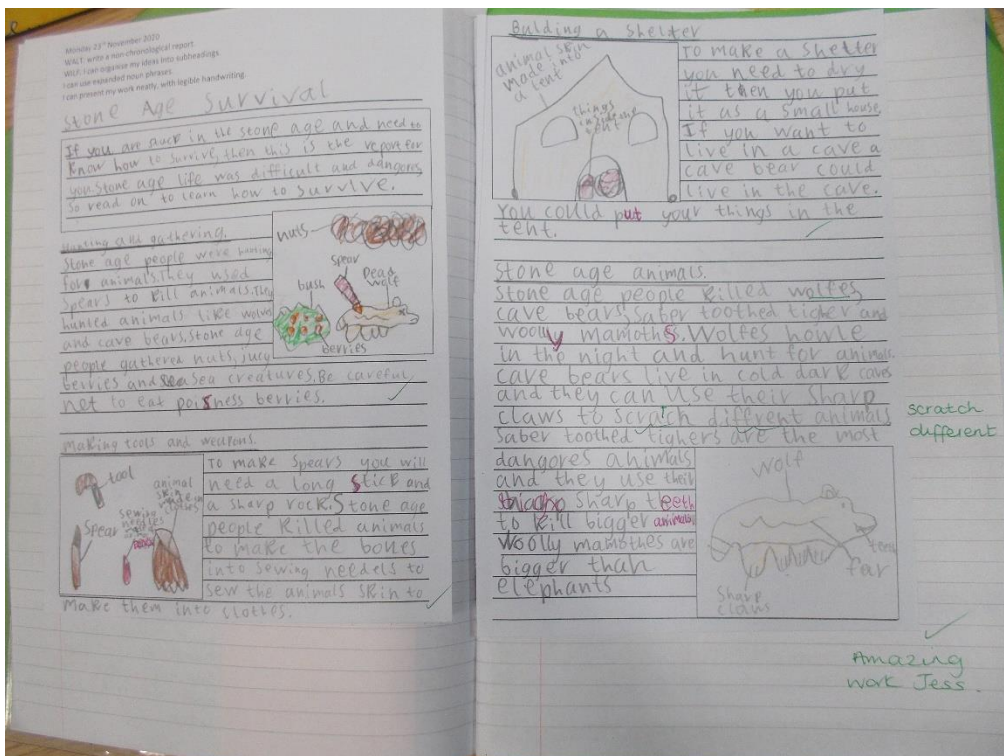 Monday 23rd November 2020
WALT: write a non chronological report.
WILF: I can organise my ideas into subheadings.
I can use expanded noun phrases.
I can present my work neatly, with legible handwriting.
Stone Age Survival
If you are stuck in the stone age and need to
know how to survive, then this is the report for
you. Stone age life was difficult and dangores,
So read on to learn how to survive.
Hunting and gathering.
Stone age people were hunting
for animals. They used
spears to kill animals. They
hunted animals like wolves
and cave bears. Stone age
people gathered nuts, jucy
berries and sea creatures. Be careful
not to eat poisness berries.
nuts
spear
Dead
wolf
bush
berries
making tools and weapons.
tool
spear
sewing
needles
animal
skin
made in
clothes
To make spears you will
need a long stick and
a sharp rock. Stone age
people killed animals
to make the bones
into sewing needels to
sew the animals skin to
make them into clothes.
Bulding a Shelter
animal skin
made into
a tent
things
inside the
tent
To make a shelter
you need to dry
it then you put
it as a small house.
If you want to
live in a cave a
cave bear could
live in the cave.
You could put your things in the
tent.
Stone age animals.
Stone age people killed wolfes,
cave bears, Saber toothed tigher and
woolly mamoths. Wolfes howle
in the night and hunt for animals.
cave bears live in cold dark caves
and they can use their sharp
claws to scratch diffrent animals
Saber toothed tighers are the most
dangores animals
and they use their
sharp teeth
to kill bigger animals
Woolly mamothes are
bigger than
elephants
scratch
different
wolf
teeth
far
Sharp
claws
Amazing
work Jess.